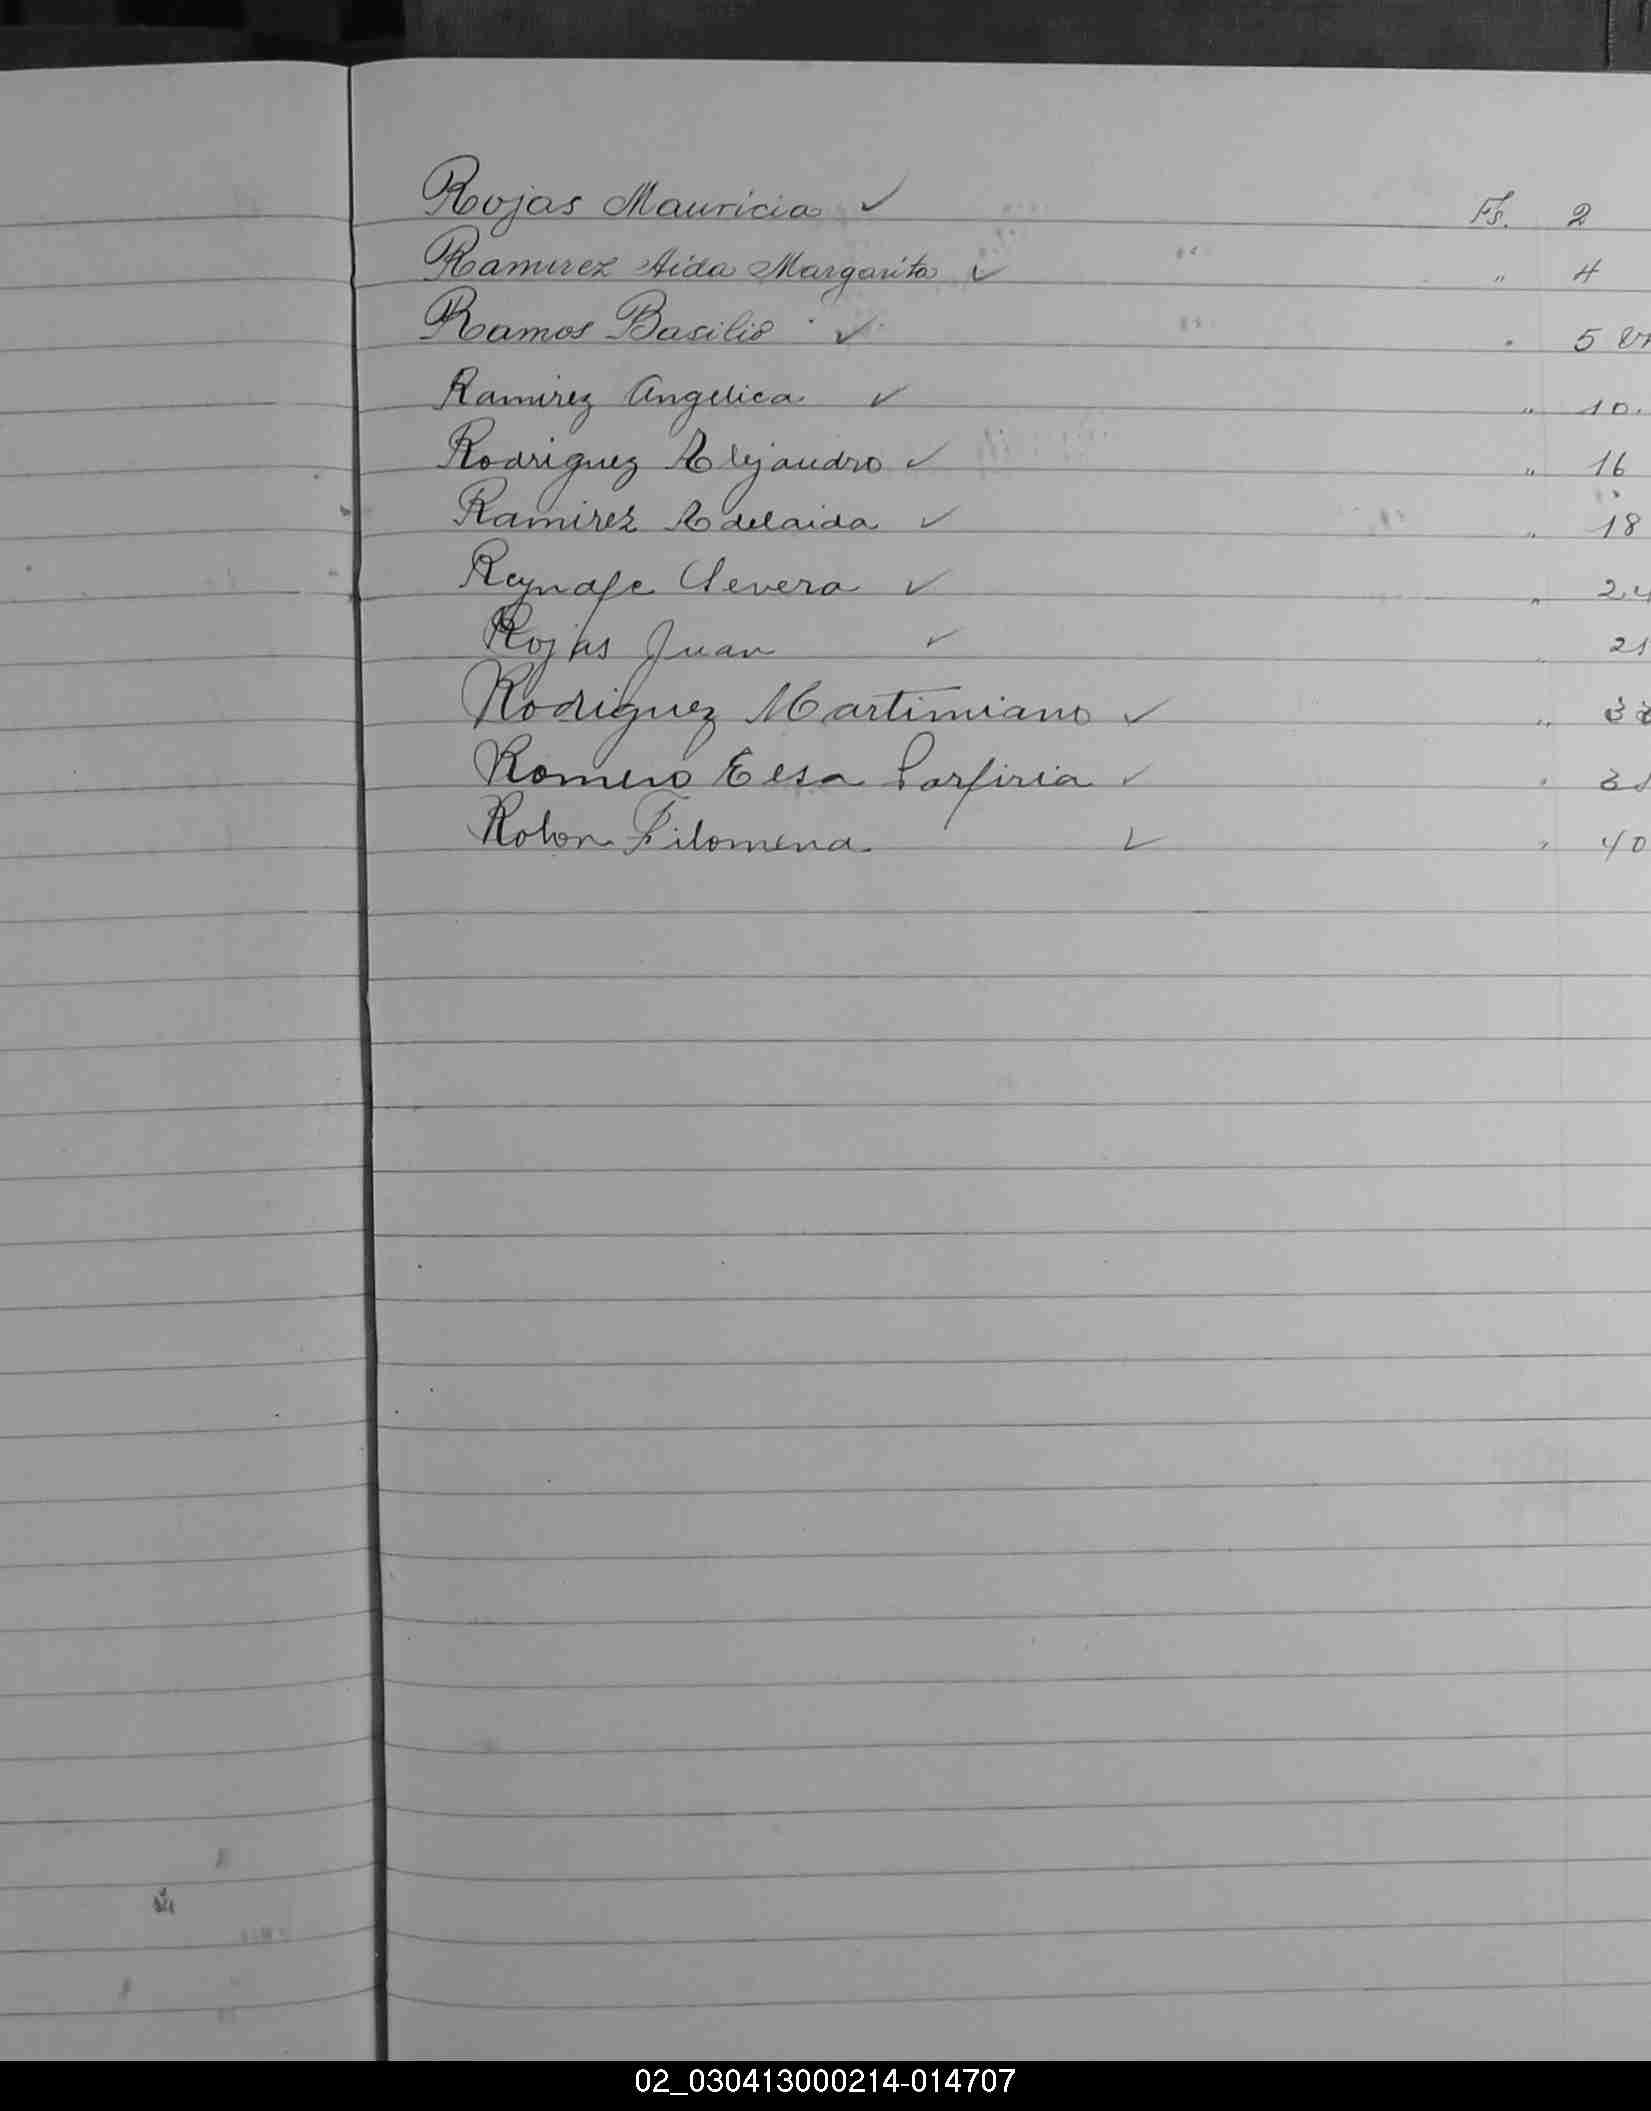 Rojas Mauricia ✓ Fs. 2
Ramirez Aida Margarita ✓ " 4
Ramos Basilio ✓ " 5
Ramirez Angelica ✓ " 10
Rodriguez Alejandro ✓ " 16
Ramirez Adelaida ✓ " 18
Reynafe Clevera ✓ "
Rojas Juan ✓ "
Rodriguez Martimiano ✓ "
Romero Elsa Porfiria ✓ "
Rolon Filomena ✓ " 40
02_030413000214-014707